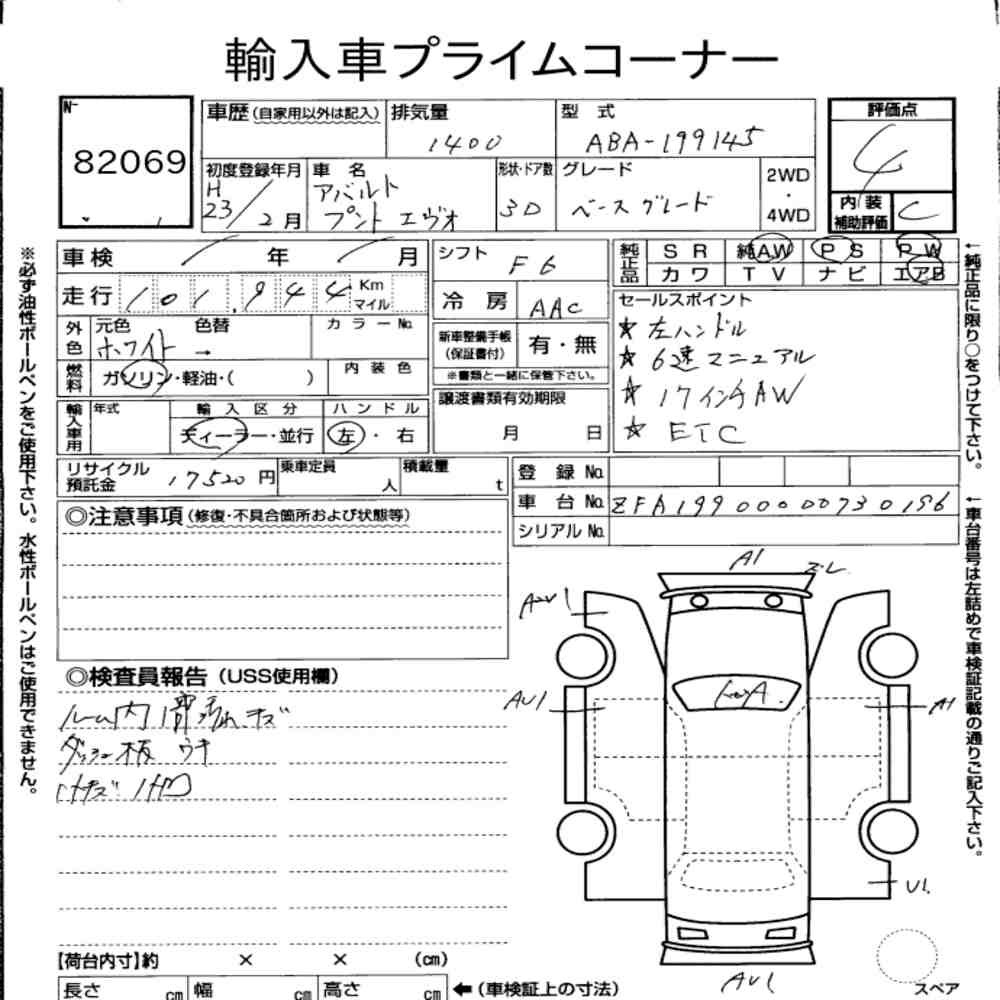 輸入車プライムコーナー
N-
82069
車歴(自家用以外は記入)
排気量
1400
型 式
ABA-199145
評価点
4
初度登録年月
H
23/2月
車 名
アバルト
プント エヴォ
形状・ドア数
3D
グレード
ベースグレード
2WD
・
4WD
内 装
補助評価
C
※必ず油性ボールペンをご使用下さい。水性ボールペンはご使用できません。
車検 / 年 / 月
走行 101,944 Km マイル
外色
元色 色替
ホワイト →
カラーNo.
燃料
ガソリン・軽油・( )
内 装 色
輸入車用
年式
輸 入 区 分
ディーラー・並行
ハ ン ド ル
左・右
シフト
F6
冷 房
AAC
新車整備手帳
(保証書付)
有・無
※書類と一緒に保管下さい。
譲渡書類有効期限
月 日
純正品
S R 純AW P S P W
カ ワ T V ナ ビ エアB
セールスポイント
☆ 左ハンドル
☆ 6速マニュアル
☆ 17インチAW
☆ ETC
←純正品に限り○をつけて下さい。
リサイクル
預託金
17520円
乗車定員
人
積載量
t
登 録 No.
車 台 No. ZFA19900000730156
シリアル No.
←車台番号は左詰めで車検証記載の通りご記入下さい。
◎注意事項(修復・不具合箇所および状態等)
◎検査員報告(USS使用欄)
ルーム内
キズ
ダッシュ板 ウキ
A1
AU1
AU1
A1
U1.
AU1
スペア
【荷台内寸】約 × × (cm)
長さ cm 幅 cm 高さ cm ←(車検証上の寸法)